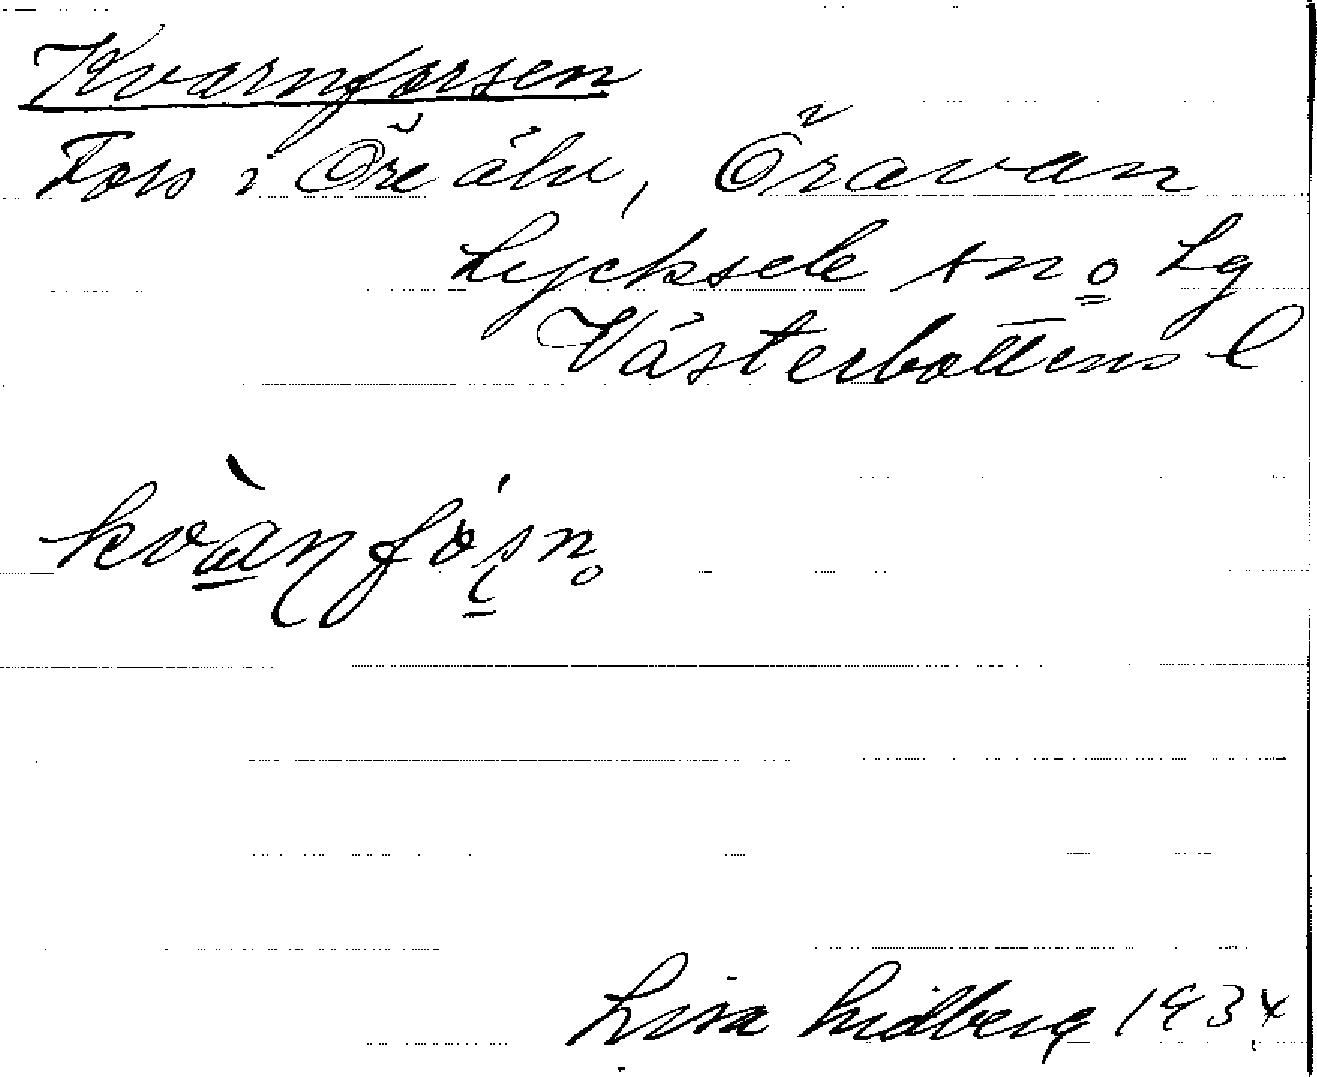 Kvarnforsen
Fors i Öre älv, Öravan
Lycksele sn o Lg
Västerbottens l
kvànfósn
Lisa Lidberg 1934